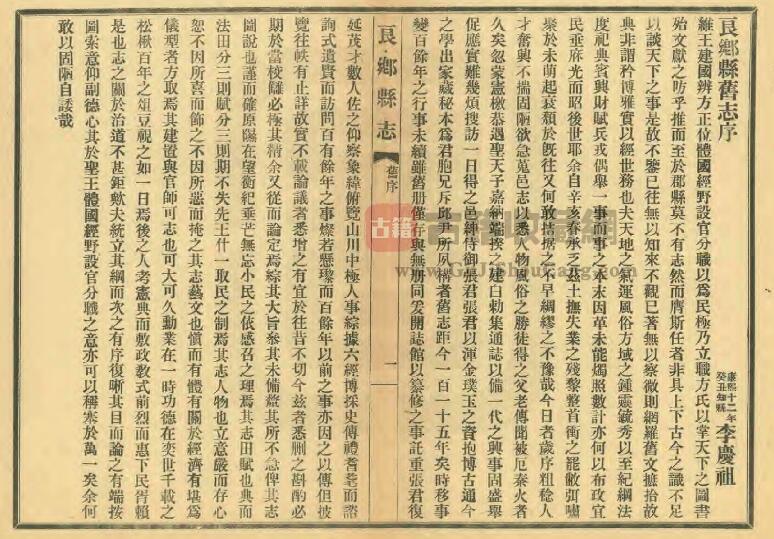 良鄉縣舊志序
康熙十二年癸丑知縣 李慶祖
維王建國辨方正位體國經野設官分職以為民極乃立職方氏以掌天下之圖書
始文獻之昉乎推而至於郡縣莫不有志然而膺斯任者非具上下古今之識不足
以談天下之事是故不鑒已往無以知來不觀已著無以察微則網羅舊文摭拾故
典非謂矜博雅實以經世務也夫天地之氣運風俗方域之鍾靈毓秀以至紀綱法
度祀典賓興財賦兵戎偶舉一事而事之本末因革未能燭照數計亦何以布政宜
民垂庥光而昭後世耶余自辛亥春承乏茲土撫失業之殘黎整首衝之罷敝弭嘯
聚於未萌起衰頹於既往又何敢拮据之不早綢繆之不豫哉今日者歲序粗稔人
才奮興不揣固陋欲急蒐邑志以悉人物風俗之勝徒得之父老傳聞被厄秦火者
久矣忽蒙憲檄恭遇聖天子嘉納端揆之建白勅集通誌以備一代之興事固盛舉
促應實難幾煩搜訪一日得之邑紳侍御張君張君以渾金璞玉之資抱博古通今
之學出家藏秘本為君胞兄斥邱尹所夙構者舊志距今一百一十五年矣時移事
變百餘年之行事未續雖舊册僅存與無册同爰開誌館以纂修之事託重張君復
良鄉縣志 舊序 一
延茂才數人佐之仰察象緯俯覽山川中極人事綜據六經博採史傳禮耆耄而諮
詢式遺賢而訪問百有餘年之事燦若懸瓈而百餘年以前之事亦因之以傳但披
覽往帙有止詳故實不載論議者悉增之有宜於往昔不切今茲者悉删之斟酌必
期於當梭讎必極其精余又從而論定焉綜其大旨參其未備釐其所不急俾其志
圖說也謹而確原隰在望衡紀垂芒無忘小民之依感召之理焉其志田賦也典而
法田分三則賦分三則期不失先王什一取民之制焉其志人物也立意嚴而存心
恕不因所喜而飾之不因所惡而掩之其志藝文也慎而有體有關於經濟有堪為
儀型者方取焉其建置與官師可志也可大可久勳業在一時功德在奕世千載之
松楸百年之俎豆視之如一日焉後之人考憲典而敷政教式前烈而惠下民胥賴
是也志之關於治道不甚鉅歟夫統立其綱而次之有序復晰其目而論之有端按
圖索意仰副德心其於聖王體國經野設官分職之意亦可以稱柰於萬一矣余何
敢以固陋自諉哉
古籍
www.GuJiShuYang.com